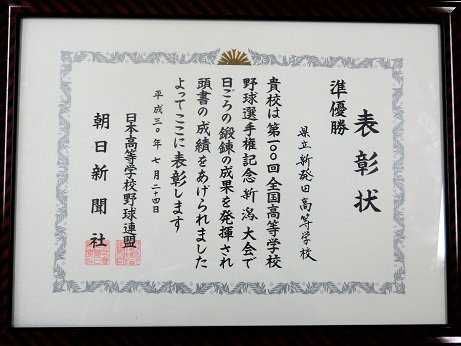 表彰状
準優勝
県立新発田高等学校
貴校は第一〇〇回全国高等学校
野球選手権記念新潟大会で
日ごろの鍛錬の成果を発揮され
頭書の成績をあげられました
よってここに表彰します
平成三〇年七月二十四日
日本高等学校野球連盟
朝日新聞社